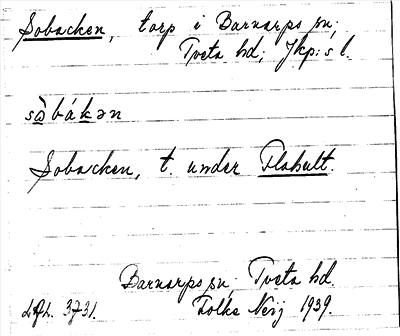 Sobacken, torp i Barnarps sn.
Tveta hd, Jkp:s l.
sòbákən
Sobacken, t. under Flahult.
Barnarps sn. Tveta hd.
Folke Neij 1939.